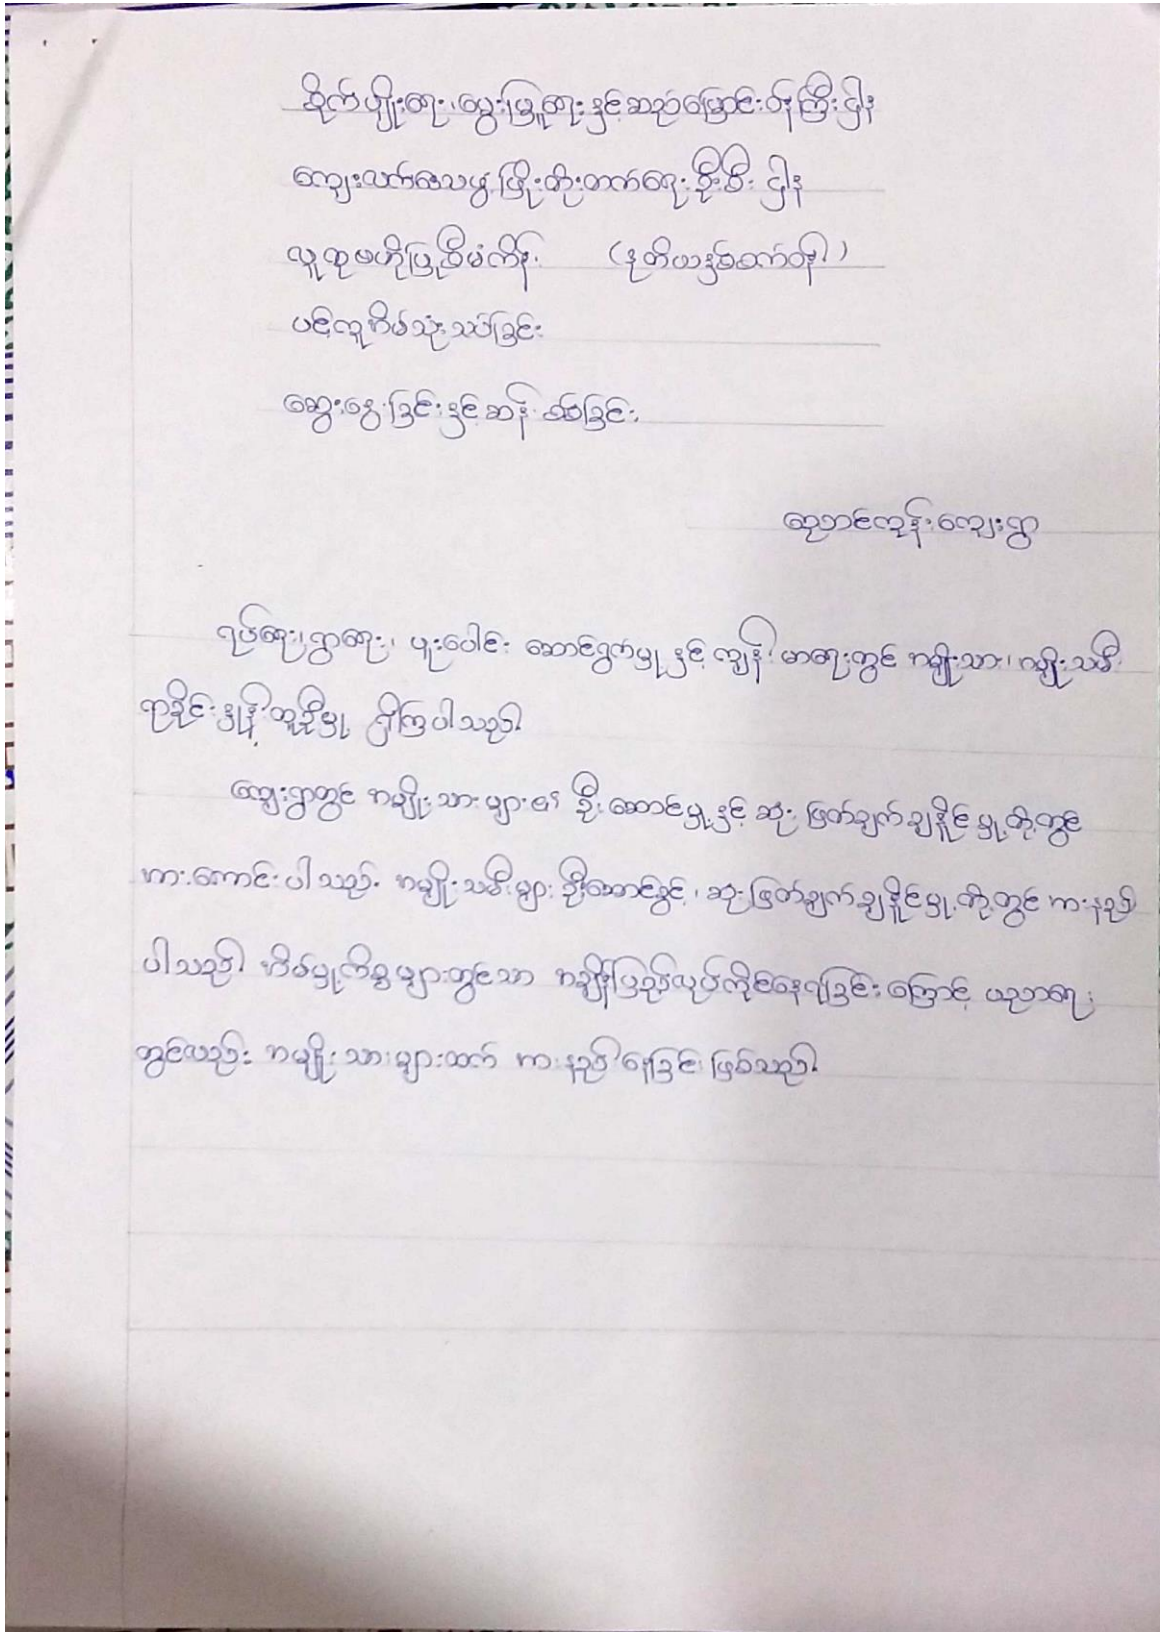 စိုက်ပျိုးရေး၊ မွေးမြူရေးနှင့်ဆည်မြောင်းဝန်ကြီးဌာန
ကျေးလက်ဒေသဖွံ့ဖြိုးတိုးတက်ရေးဦးစီးဌာန
လူထုဗဟိုပြုစီမံကိန်း (ဒုတိယနှစ်စက်ဝန်း)
ပင့်ကူအိမ်သုံးသပ်ခြင်း
ဆွေးနွေးခြင်းနှင့်ဆန်းစစ်ခြင်း
ကျေးရွာ
ရပ်ရေး၊ ရွာရေး၊ ပူးပေါင်း ဆောင်ရွက်မှုနှင့် ကျန်းမာရေးတွင် အမျိုးသား၊ အမျိုးသမီး
ရာခိုင်းနှုန်းတူညီမှု ရှိကြပါသည်။
ကျေးရွာတွင် အမျိုးသားများ၏ ဦးဆောင်မှုနှင့် ဆုံးဖြတ်ချက်ချနိုင်မှုတို့တွင်
အားကောင်းပါသည်။ အမျိုးသမီးများ ဦးဆောင်ခွင့်၊ ဆုံးဖြတ်ချက်ချနိုင်မှုတို့တွင် အားနည်း
ပါသည်။ အိမ်မှုကိစ္စများတွင်သာ အချိန်ပြည့်လုပ်ကိုင်နေရခြင်းကြောင့် ပညာရေး
တွင်လည်း အမျိုးသားများထက် အားနည်းနေခြင်းဖြစ်သည်။